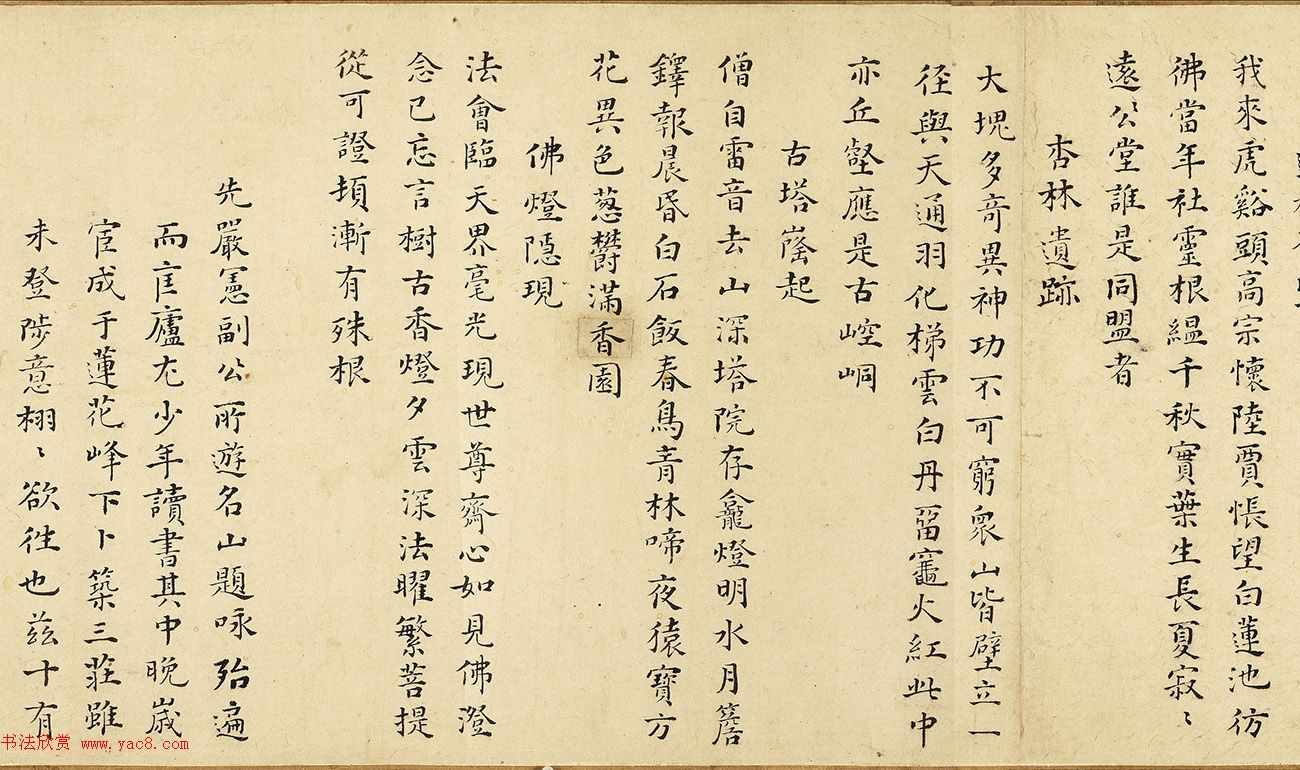 我來虎谿頭高宗懷陸賈悵望白蓮池彷
彿當年社靈根縕千秋實葉生長夏寂〻
遠公堂誰是同盟者
杏林遺跡
大塊多奇異神功不可窮眾山皆壁立一
徑與天通羽化梯雲白丹留竈火紅此中
亦丘壑應是古崆峒
古塔窿起
僧自雷音去山深塔院存龕燈明水月簷
鐸報晨昏白石飯春鳥青林啼夜猿寶方
花異色蔥欝滿香園
佛燈隱現
法會臨天界毫光現世尊齋心如見佛澄
念已忘言樹古香燈夕雲深法曜繁菩提
從可證頓漸有殊根
先嚴憲副公所遊名山題咏殆遍
而匡廬尤少年讀書其中晚歲
宦成于蓮花峰下卜築三莊雖
未登陟意栩〻欲徃也茲十有
书法欣赏 www.yac8.com